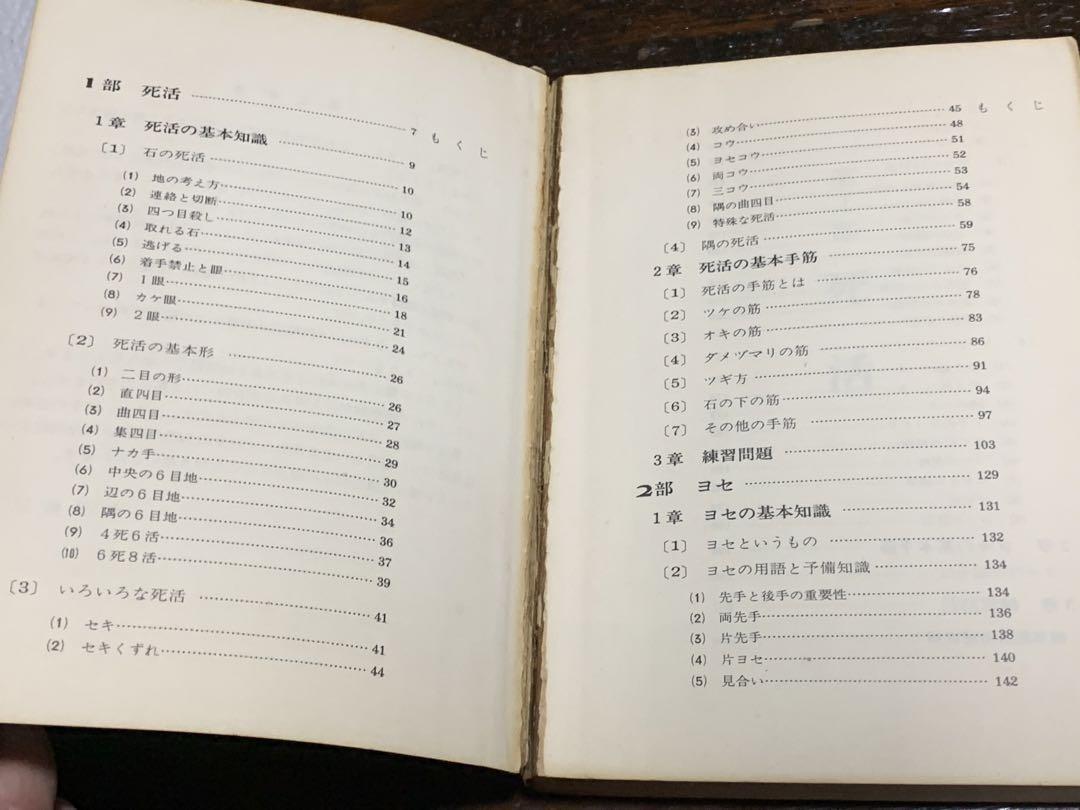 1部 死活 …… 7 もくじ
1章 死活の基本知識 …… 9
〔1〕 石の死活 …… 10
(1) 地の考え方 …… 10
(2) 連絡と切断 …… 12
(3) 四つ目殺し …… 13
(4) 取れる石 …… 14
(5) 逃げる …… 15
(6) 着手禁止と眼 …… 16
(7) 1眼 …… 18
(8) カケ眼 …… 21
(9) 2眼 …… 24
〔2〕 死活の基本形 …… 26
(1) 二目の形 …… 26
(2) 直四目 …… 27
(3) 曲四目 …… 28
(4) 集四目 …… 29
(5) ナカ手 …… 30
(6) 中央の6目地 …… 32
(7) 辺の6目地 …… 34
(8) 隅の6目地 …… 36
(9) 4死6活 …… 37
(10) 6死8活 …… 39
〔3〕 いろいろな死活 …… 41
(1) セキ …… 41
(2) セキくずれ …… 44
(3) 攻め合い …… 45 もくじ
(4) コウ …… 48
(5) ヨセコウ …… 51
(6) 両コウ …… 52
(7) 三コウ …… 53
(8) 隅の曲四目 …… 54
(9) 特殊な死活 …… 58
〔4〕 隅の死活 …… 59
2章 死活の基本手筋 …… 75
〔1〕 死活の手筋とは …… 76
〔2〕 ツケの筋 …… 78
〔3〕 オキの筋 …… 83
〔4〕 ダメヅマリの筋 …… 86
〔5〕 ツギ方 …… 91
〔6〕 石の下の筋 …… 94
〔7〕 その他の手筋 …… 97
3章 練習問題 …… 103
2部 ヨセ …… 129
1章 ヨセの基本知識 …… 131
〔1〕 ヨセというもの …… 132
〔2〕 ヨセの用語と予備知識 …… 134
(1) 先手と後手の重要性 …… 134
(2) 両先手 …… 136
(3) 片先手 …… 138
(4) 片ヨセ …… 140
(5) 見合い …… 142